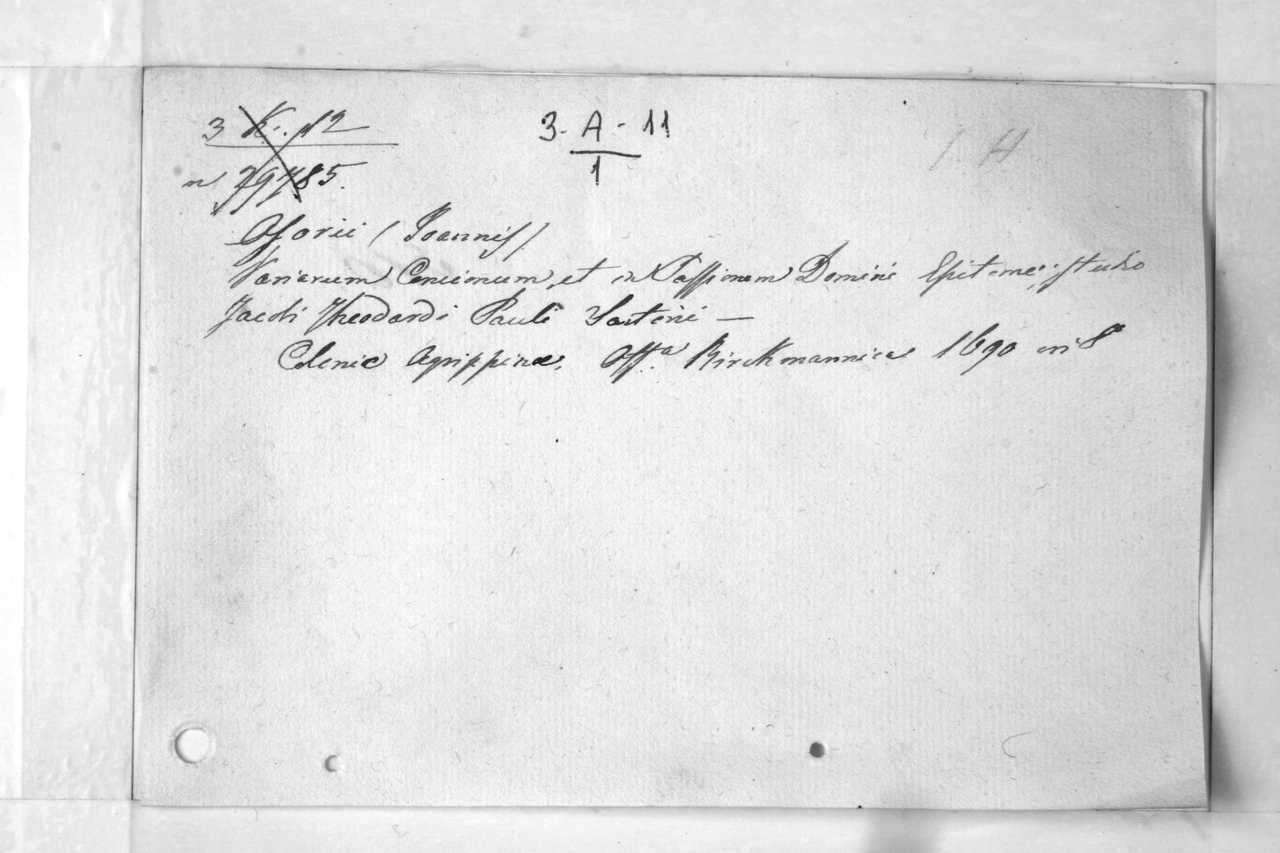 3 K. 12
3-A-11
1
n 79785.
Osorii (Joannis)
Variarum Concionum, et in Passionem Domini Epitome; studio
Jacobi Theodardi Pauli Sartorii —
Coloniæ Agrippinæ, Off.ª Birckmannica 1690 in 8º